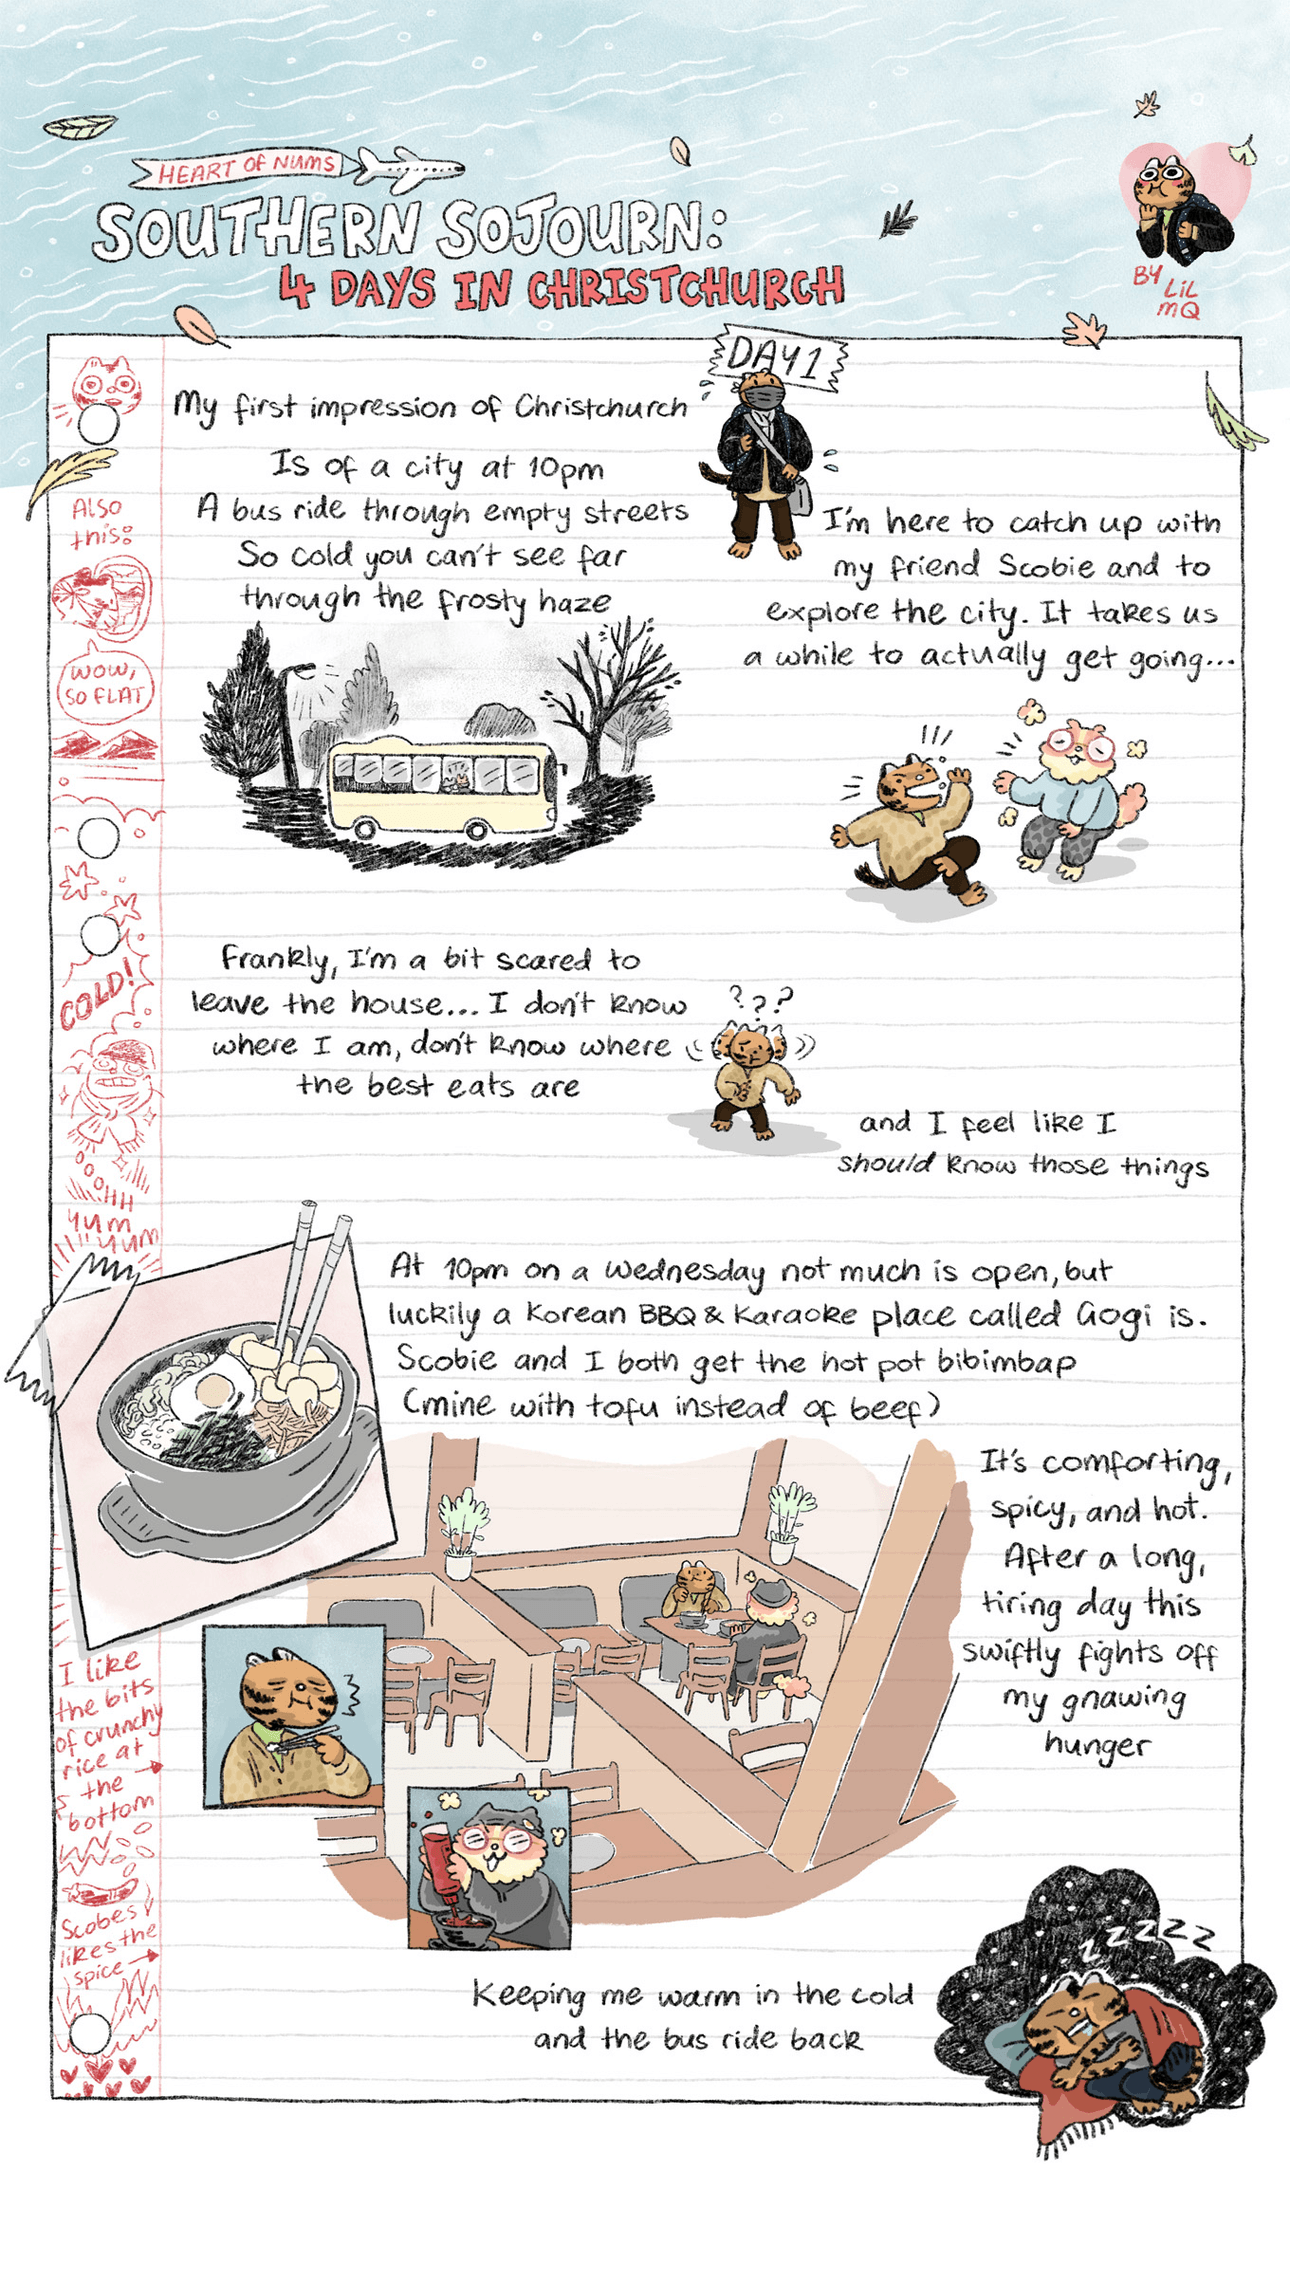 HEART OF NUMS
SOUTHERN SOJOURN:
4 DAYS IN CHRISTCHURCH
BY
LiL
MQ
DAY 1
My first impression of Christchurch
Is of a city at 10pm
A bus ride through empty streets
So cold you can't see far
through the frosty haze
I'm here to catch up with
my friend Scobie and to
explore the city. It takes us
a while to actually get going...
Also
this:
WOW,
SO FLAT
COLD!
Frankly, I'm a bit scared to
leave the house... I don't know
where I am, don't know where
the best eats are
???
and I feel like I
should know those things
OOOOHH
yum
yum
At 10pm on a Wednesday not much is open, but
luckily a Korean BBQ & Karaoke place called Gogi is.
Scobie and I both get the hot pot bibimbap
(mine with tofu instead of beef)
It's comforting,
spicy, and hot.
After a long,
tiring day this
swiftly fights off
my gnawing
hunger
I like
the bits
of crunchy
rice at
the
bottom
Scobes
likes the
spice
Keeping me warm in the cold
and the bus ride back
zzzzz